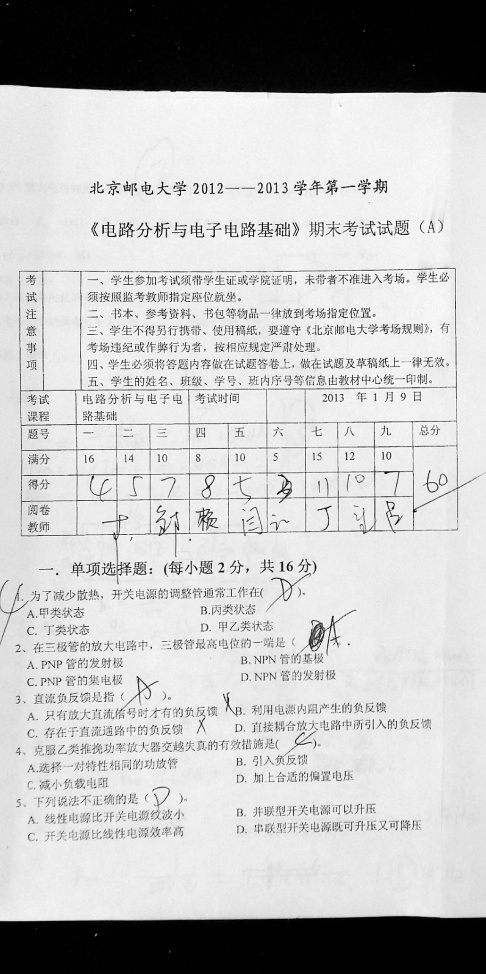 北京邮电大学2012——2013学年第一学期
《电路分析与电子电路基础》期末考试试题（A）
考试注意事项
一、学生参加考试须带学生证或学院证明，未带者不准进入考场。学生必
须按照监考教师指定座位就坐。
二、书本、参考资料、书包等物品一律放到考场指定位置。
三、学生不得另行携带、使用稿纸，要遵守《北京邮电大学考场规则》，有
考场违纪或作弊行为者，按相应规定严肃处理。
四、学生必须将答题内容做在试题答卷上，做在试题及草稿纸上一律无效。
五、学生的姓名、班级、学号、班内序号等信息由教材中心统一印制。
考试课程 电路分析与电子电路基础 考试时间 2013 年 1 月 9 日
题号 一 二 三 四 五 六 七 八 九 总分
满分 16 14 10 8 10 5 15 12 10
得分 4 5 7 8 5 11 10 7 60
阅卷教师
一．单项选择题：(每小题 2 分，共 16 分)
4
1. 为了减少散热，开关电源的调整管通常工作在( D )。
A.甲类状态 B.丙类状态
C. 丁类状态 D. 甲乙类状态
2、在三极管的放大电路中，三极管最高电位的一端是（ A .
A. PNP 管的发射极 B. NPN 管的基极
C. PNP 管的集电极 D. NPN 管的发射极
3、直流负反馈是指（ ）。
A. 只有放大直流信号时才有的负反馈 B. 利用电源内阻产生的负反馈
C. 存在于直流通路中的负反馈 D. 直接耦合放大电路中所引入的负反馈
4、克服乙类推挽功率放大器交越失真的有效措施是( )。
A.选择一对特性相同的功放管 B. 引入负反馈
C.减小负载电阻 D. 加上合适的偏置电压
5、下列说法不正确的是（ D ）。
A. 线性电源比开关电源纹波小 B. 并联型开关电源可以升压
C. 开关电源比线性电源效率高 D. 串联型开关电源既可升压又可降压